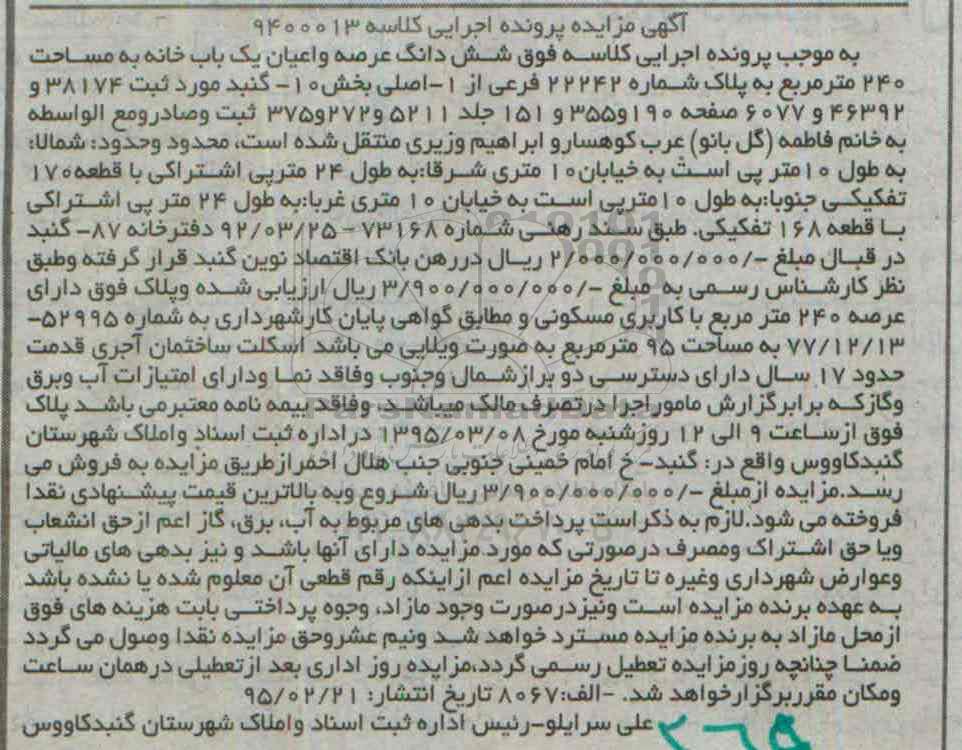 آگهی مزایده پرونده اجرایی کلاسه ۹۴۰۰۰۱۳
به موجب پرونده اجرایی کلاسه فوق شش دانگ عرصه واعیان یک باب خانه به مساحت
۲۴۰ مترمربع به پلاک شماره ۲۲۲۴۲ فرعی از ۱-اصلی بخش۱۰- گنبد مورد ثبت ۳۸۱۷۴ و
۴۶۳۹۲ و ۶۰۷۷ صفحه ۱۹۰و۳۵۵ و ۱۵۱ جلد ۵۲۱۱ و۲۷۲و۳۷۵ ثبت وصادرومع الواسطه
به خانم فاطمه (گل بانو) عرب کوهسارو ابراهیم وزیری منتقل شده است، محدود وحدود: شمالا:
به طول ۱۰متر پی است به خیابان۱۰ متری شرقا:به طول ۲۴ مترپی اشتراکی با قطعه۱۷۰
تفکیکی جنوبا:به طول ۱۰مترپی است به خیابان ۱۰ متری غربا:به طول ۲۴ متر پی اشتراکی
با قطعه ۱۶۸ تفکیکی. طبق سند رهنی شماره ۷۳۱۶۸-۹۲/۰۳/۲۵ دفترخانه ۸۷- گنبد
در قبال مبلغ -/۲/۰۰۰/۰۰۰/۰۰۰ ریال دررهن بانک اقتصاد نوین گنبد قرار گرفته وطبق
نظر کارشناس رسمی به مبلغ -/۳/۹۰۰/۰۰۰/۰۰۰ ریال ارزیابی شده وپلاک فوق دارای
عرصه ۲۴۰ متر مربع با کاربری مسکونی و مطابق گواهی پایان کارشهرداری به شماره ۵۲۹۹۵-
۷۷/۱۲/۱۳ به مساحت ۹۵ مترمربع به صورت ویلایی می باشد اسکلت ساختمان آجری قدمت
حدود ۱۷ سال دارای دسترسی دو برازشمال وجنوب وفاقد نما ودارای امتیازات آب وبرق
وگازکه برابرگزارش ماموراجرا درتصرف مالک میباشد، وفاقد بیمه نامه معتبرمی باشد پلاک
فوق ازساعت ۹ الی ۱۲ روزشنبه مورخ ۱۳۹۵/۰۳/۰۸ دراداره ثبت اسناد واملاک شهرستان
گنبدکاووس واقع در: گنبد- خ امام خمینی جنوبی جنب هلال احمرازطریق مزایده به فروش می
رسد.مزایده ازمبلغ -/۳/۹۰۰/۰۰۰/۰۰۰ ریال شروع وبه بالاترین قیمت پیشنهادی نقدا
فروخته می شود.لازم به ذکراست پرداخت بدهی های مربوط به آب، برق، گاز اعم ازحق انشعاب
ویا حق اشتراک ومصرف درصورتی که مورد مزایده دارای آنها باشد و نیز بدهی های مالیاتی
وعوارض شهرداری وغیره تا تاریخ مزایده اعم ازاینکه رقم قطعی آن معلوم شده یا نشده باشد
به عهده برنده مزایده است ونیزدرصورت وجود مازاد، وجوه پرداختی بابت هزینه های فوق
ازمحل مازاد به برنده مزایده مسترد خواهد شد ونیم عشروحق مزایده نقدا وصول می گردد
ضمنا چنانچه روزمزایده تعطیل رسمی گردد،مزایده روز اداری بعد ازتعطیلی درهمان ساعت
ومکان مقرربرگزارخواهد شد. -الف:۸۰۶۷ تاریخ انتشار: ۹۵/۰۲/۲۱
علی سرایلو-رئیس اداره ثبت اسناد واملاک شهرستان گنبدکاووس